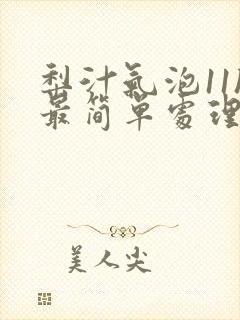 梨汁氣泡11
最简單處理
美人尖